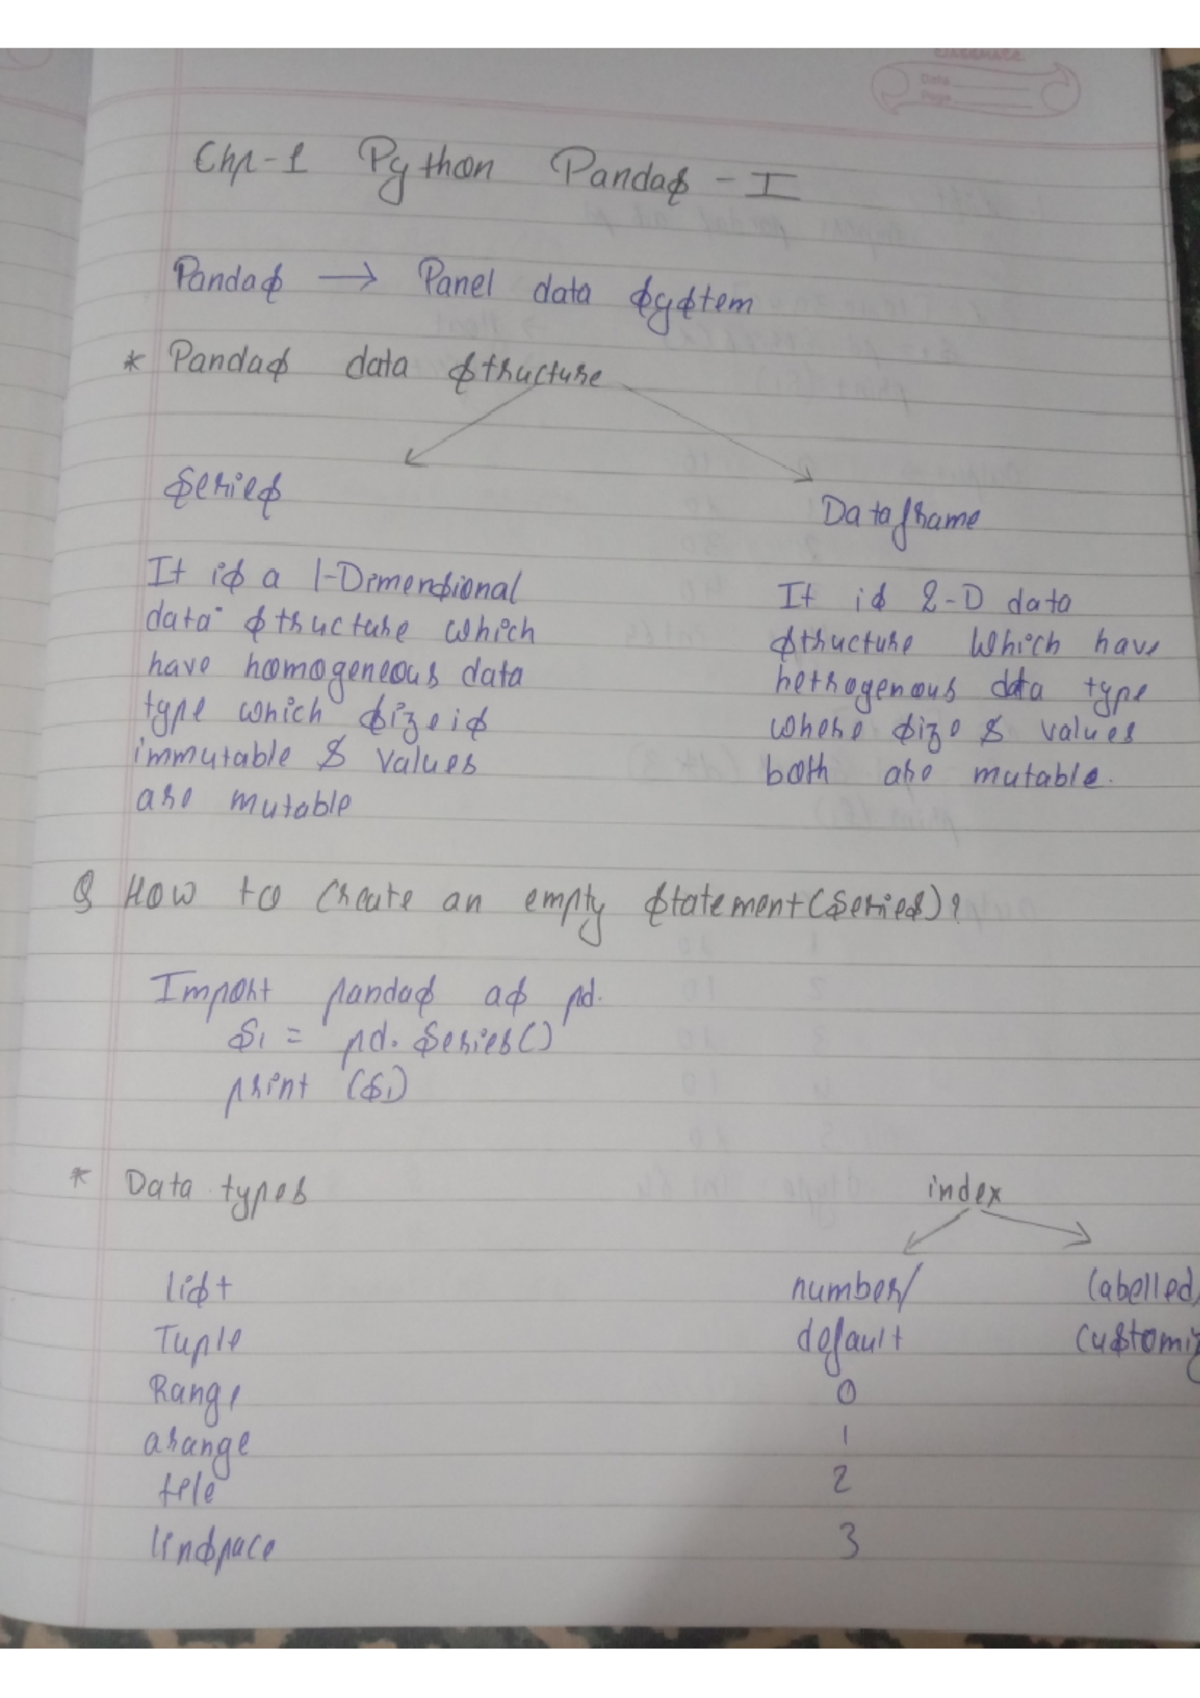 classmate
Date
Page
Chp-1 Python Pandas - I
Pandas → Panel data system
* Pandas data structure
Series
Dataframe
It is a 1-Dimensional
data structure which
have homogeneous data
type which size is
immutable & values
are mutable
It is 2-D data
structure which have
hethogenous data type
where size & values
both are mutable.
Q How to create an empty statement(series)?
Import pandas as pd.
S1 = pd. Series()
print (S1)
* Data types
index
list
number/
labelled
Tuple
default
customiz
Range
0
arange
1
tile
2
linspace
3